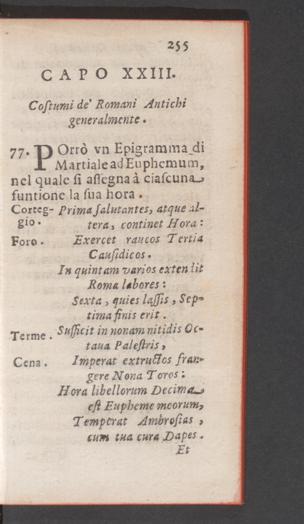 255
CAPO XXIII.
Costumi de' Romani Antichi
generalmente.
77. POrrò vn Epigramma di
Martiale ad Euphemum,
nel quale si assegna à ciascuna
funtione la sua hora.
Corteg- Prima salutantes, atque al-
gio. tera, continet Hora:
Foro. Exercet raucos Tertia
Causidicos.
In quintam varios extendit
Roma labores:
Sexta, quies lassis, Sep-
tima finis erit.
Terme. Sufficit in nonam nitidis Oc-
taua Palestris,
Cena. Imperat extructos fran-
gere Nona Toros:
Hora libellorum Decima
est Eupheme meorum,
Temperat Ambrosias,
cum tua cura Dapes.
Et